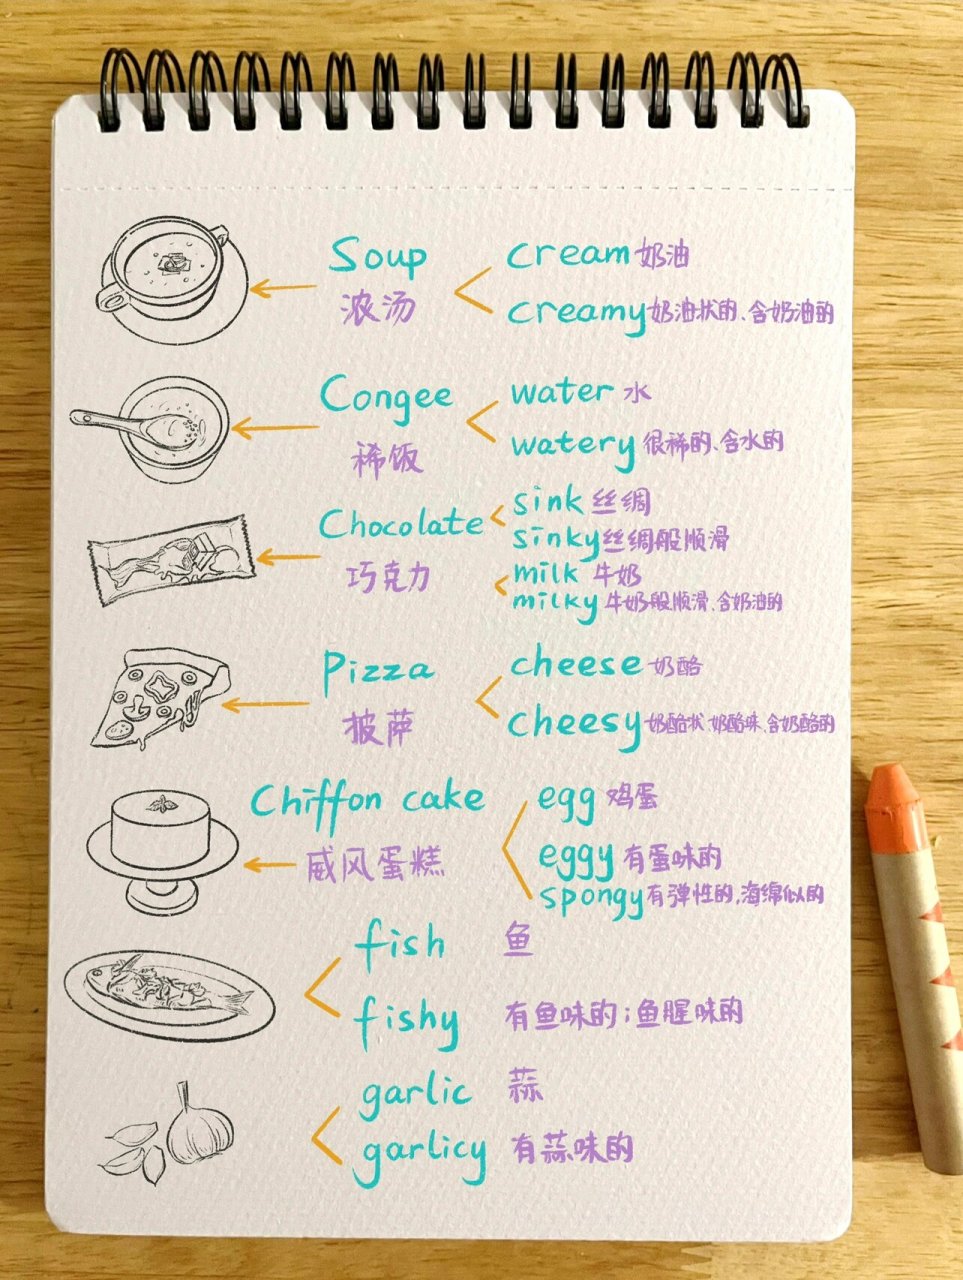 Soup
浓汤
cream 奶油
creamy 奶油状的、含奶油的
Congee
稀饭
water 水
watery 很稀的、含水的
Chocolate
巧克力
sink 丝绸
sinky 丝绸般顺滑
milk 牛奶
milky 牛奶般顺滑、含奶油的
Pizza
披萨
cheese 奶酪
cheesy 奶酪状、奶酪味、含奶酪的
Chiffon cake
威风蛋糕
egg 鸡蛋
eggy 有蛋味的
spongy 有弹性的,海绵似的
fish 鱼
fishy 有鱼味的;鱼腥味的
garlic 蒜
garlicy 有蒜味的